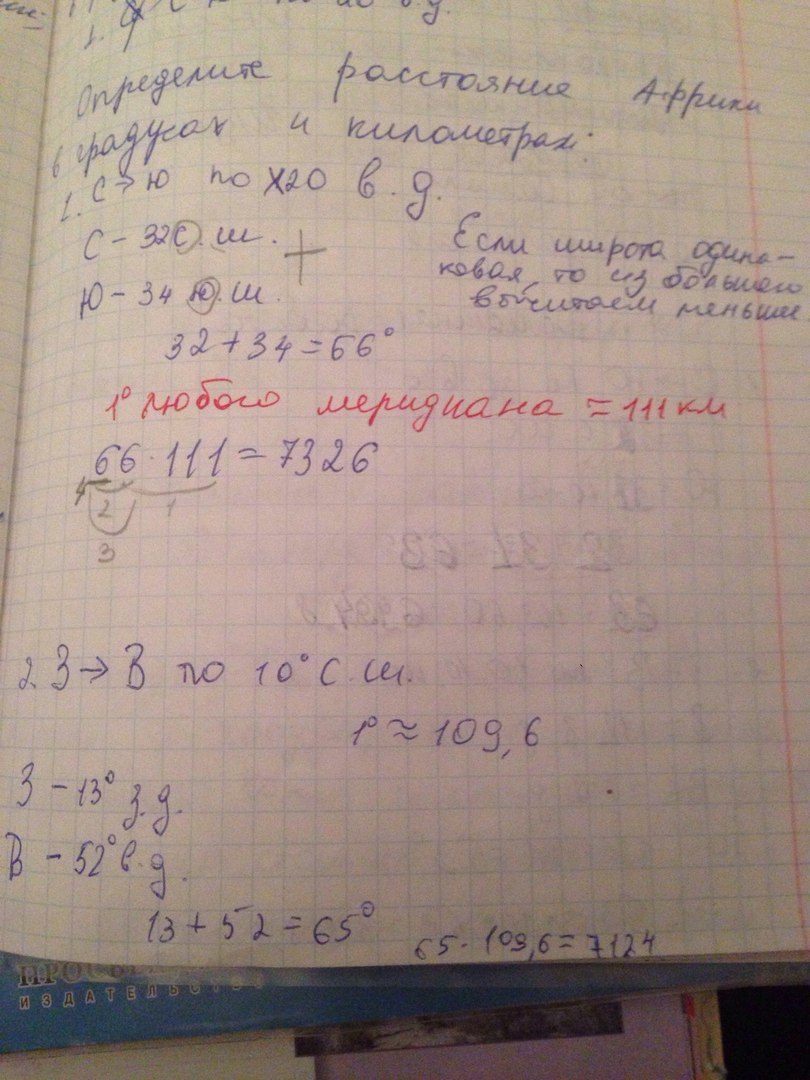 Определите расстояние Африки
в градусах и километрах:
1. С→Ю по 20 в.д.
С - 32 С.ш.
Ю - 34 Ю.ш.
+
Если широта одина-
ковая, то из большего
вычитаем меньшее.
32 + 34 = 66°
1° любого меридиана = 111 км
66 · 111 = 7326
2 1
3
2. З → В по 10° С.ш.
1° ≈ 109,6
З - 13° з.д.
В - 52° в.д.
13 + 52 = 65°
65 · 109,6 = 7124
ИЗДАТЕЛЬСТВО